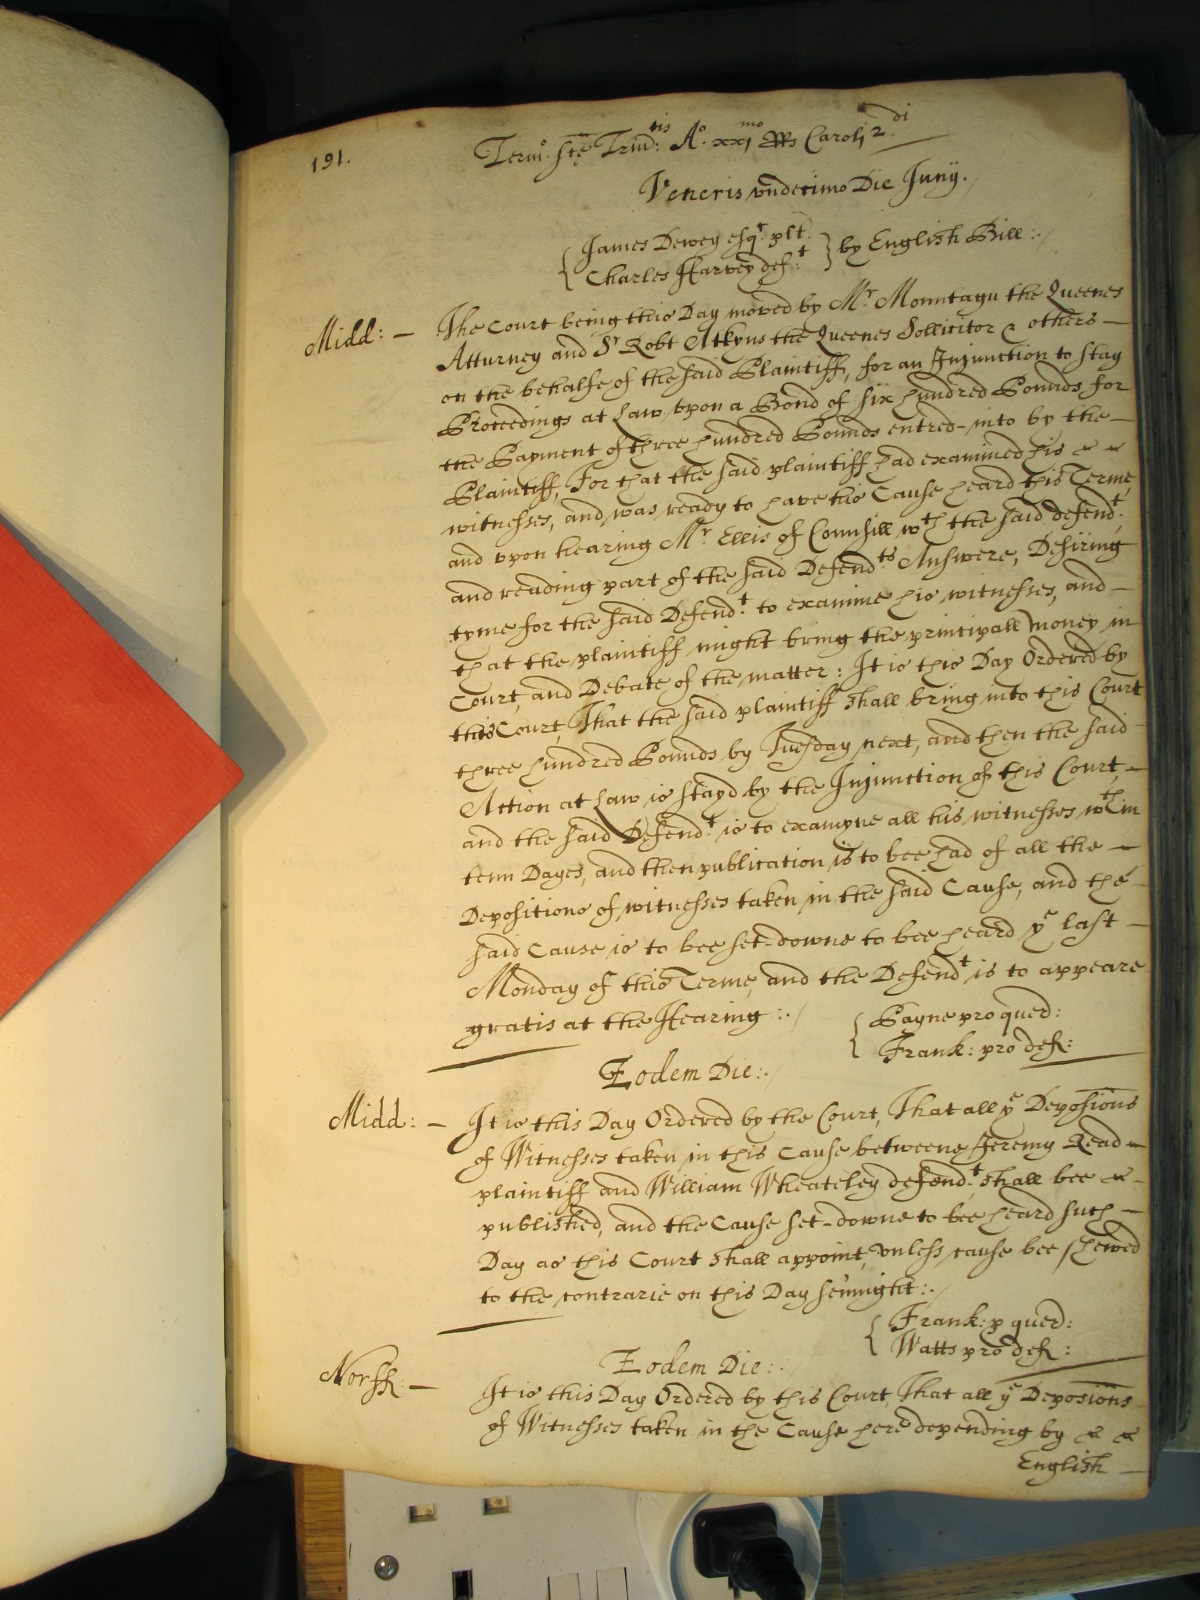 191.
Term.o Sce Trinitis: A.o xxj mo RRs Caroli 2.di
Veneris vndecimo Die Junij.
James Dewey esq.r plt.
Charles Harvey def:t
by English Bill:./
Midd: — The Court being this Day moved by M.r Monntagu the Queenes
Atturney and S.r Robt Atkyns the Queenes Sollicitor & others —
on the behalfe of the said Plaintiff, for an Injunction to stay
Proceedings at Law vpon a Bond of six Hundred Pounds for
the Payment of three Hundred Pounds entred-into by the —
Plaintiff, For that the said plaintiff had examined his
witnesses, and was ready to have his Cause heard this Terme,
and vpon hearing M.r Ellis of Counsill w.th the said defend.t,
and reading part of the said Defend.ts Answere, Desiring
tyme for the said Defend.t to examine his witnesses, and —
that the plaintiff might bring the principall money in
Court, and Debate of the matter: It is this Day Ordered by
this Court, That the said plaintiff shall bring into this Court
three Hundred Pounds by Tuesday next, and then the said
Action at Law is stayd by the Injunction of this Court, —
and the said Defend.t is to examyne all his witnesses w.thin
tenn Dayes, and then publication is to bee had of all the —
Depositions of witnesses taken in the said Cause, and the —
said Cause is to bee set-downe to bee heard y.e last —
Monday of this Terme, and the Defend.t is to appeare
gratis at the Hearing:./
Payne pro quer:
Frank: pro def:
Eodem Die:./
Midd: — It is this Day Ordered by the Court, That all y.e Deposions
of Witnesses taken in this Cause betweene Jeremy Read
plaintiff and William Wheateley defend.t shall bee
published, and the Cause set-downe to bee heard such —
Day as this Court shall appoint, vnless cause bee shewed
to the contrarie on this Day sennight:./
Frank: p quer:
Watts pro def:
Eodem Die:./
Norff: — It is this Day Ordered by this Court, That all y.e Deposions
of Witnesses taken in the Cause here depending by
English —